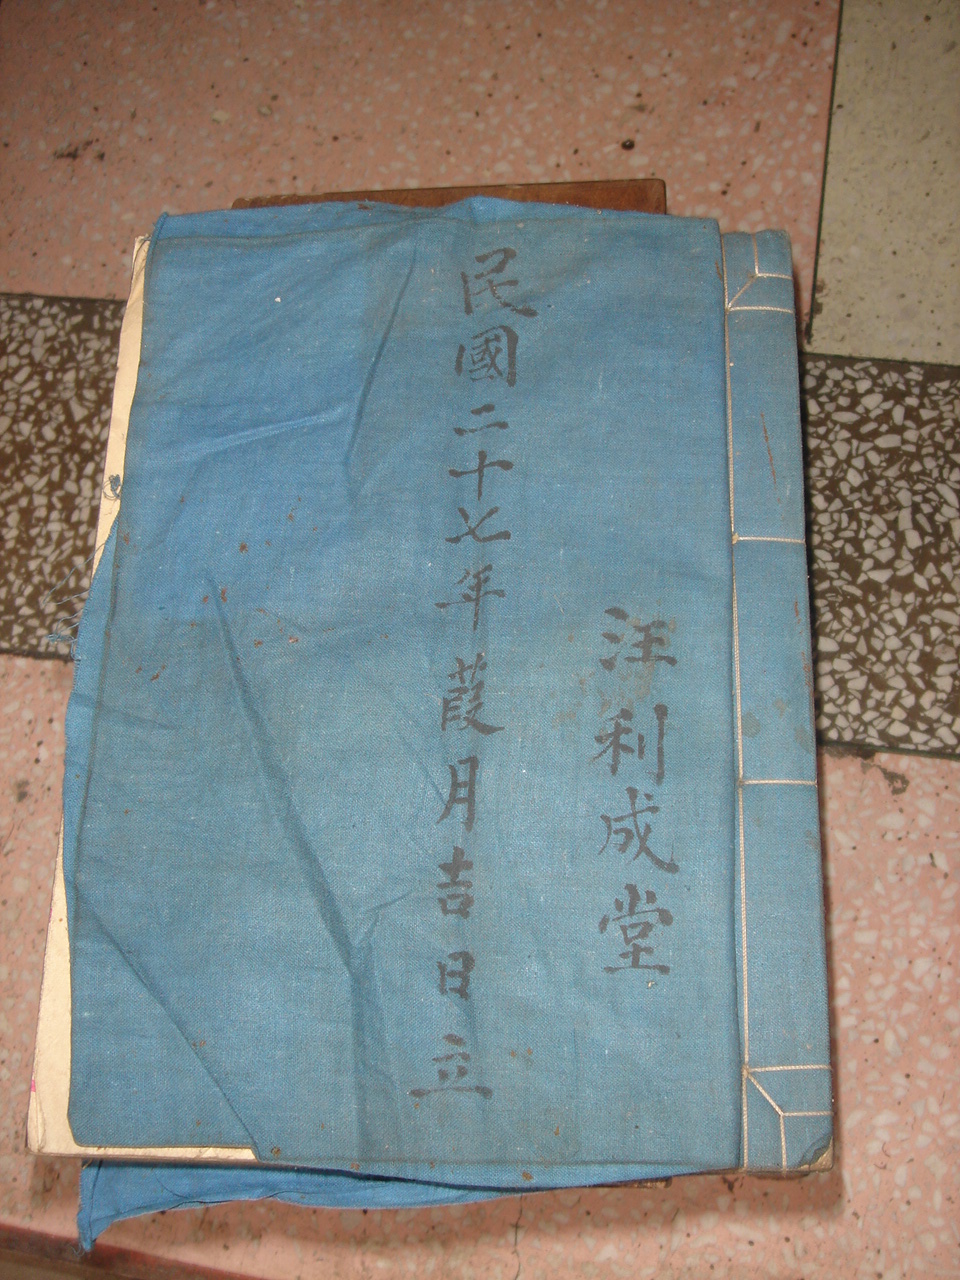 汪利成堂
民國二十七年葭月吉日立